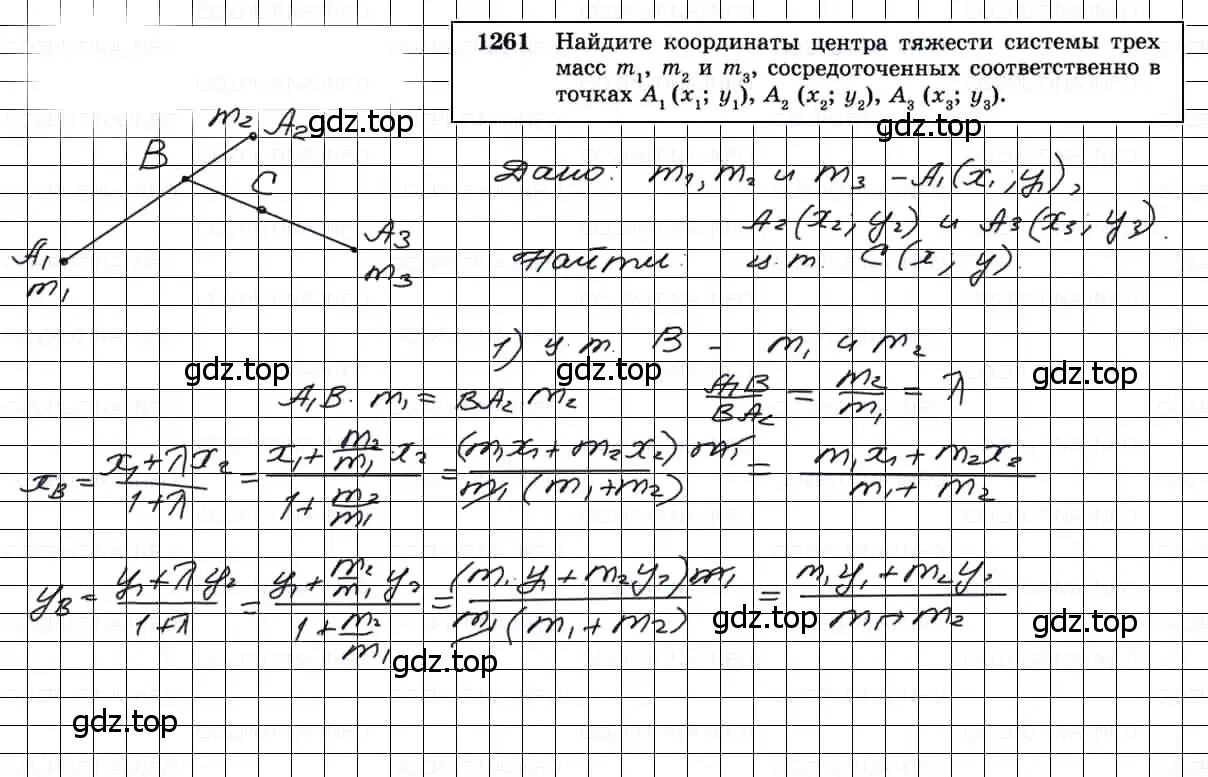 1261 Найдите координаты центра тяжести системы трех
масс m₁, m₂ и m₃, сосредоточенных соответственно в
точках A₁ (x₁; y₁), A₂ (x₂; y₂), A₃ (x₃; y₃).
m₂ A₂ gdz.top
gdz.top
B
C
A₁
m₁
A₃
m₃
Дано: m₁, m₂ и m₃ - A₁(x₁; y₁),
A₂(x₂; y₂) и A₃(x₃; y₃).
Найти: ц.т. C(x; y).
1) ц.т. B - m₁ и m₂
gdz.top gdz.top gdz.top
A₁B · m₁ = BA₂ · m₂ A₁B/BA₂ = m₂/m₁ = λ
x_B = (x₁ + λx₂)/(1 + λ) = (x₁ + m₂/m₁ · x₂)/(1 + m₂/m₁) = (m₁x₁ + m₂x₂) m₁/(m₁(m₁ + m₂)) = (m₁x₁ + m₂x₂)/(m₁ + m₂)
y_B = (y₁ + λy₂)/(1 + λ) = (y₁ + m₂/m₁ y₂)/(1 + m₂/m₁) = (m₁y₁ + m₂y₂) m₁/(m₁(m₁ + m₂)) = (m₁y₁ + m₂y₂)/(m₁ + m₂)
gdz.top gdz.top
gdz.top
gdz.top